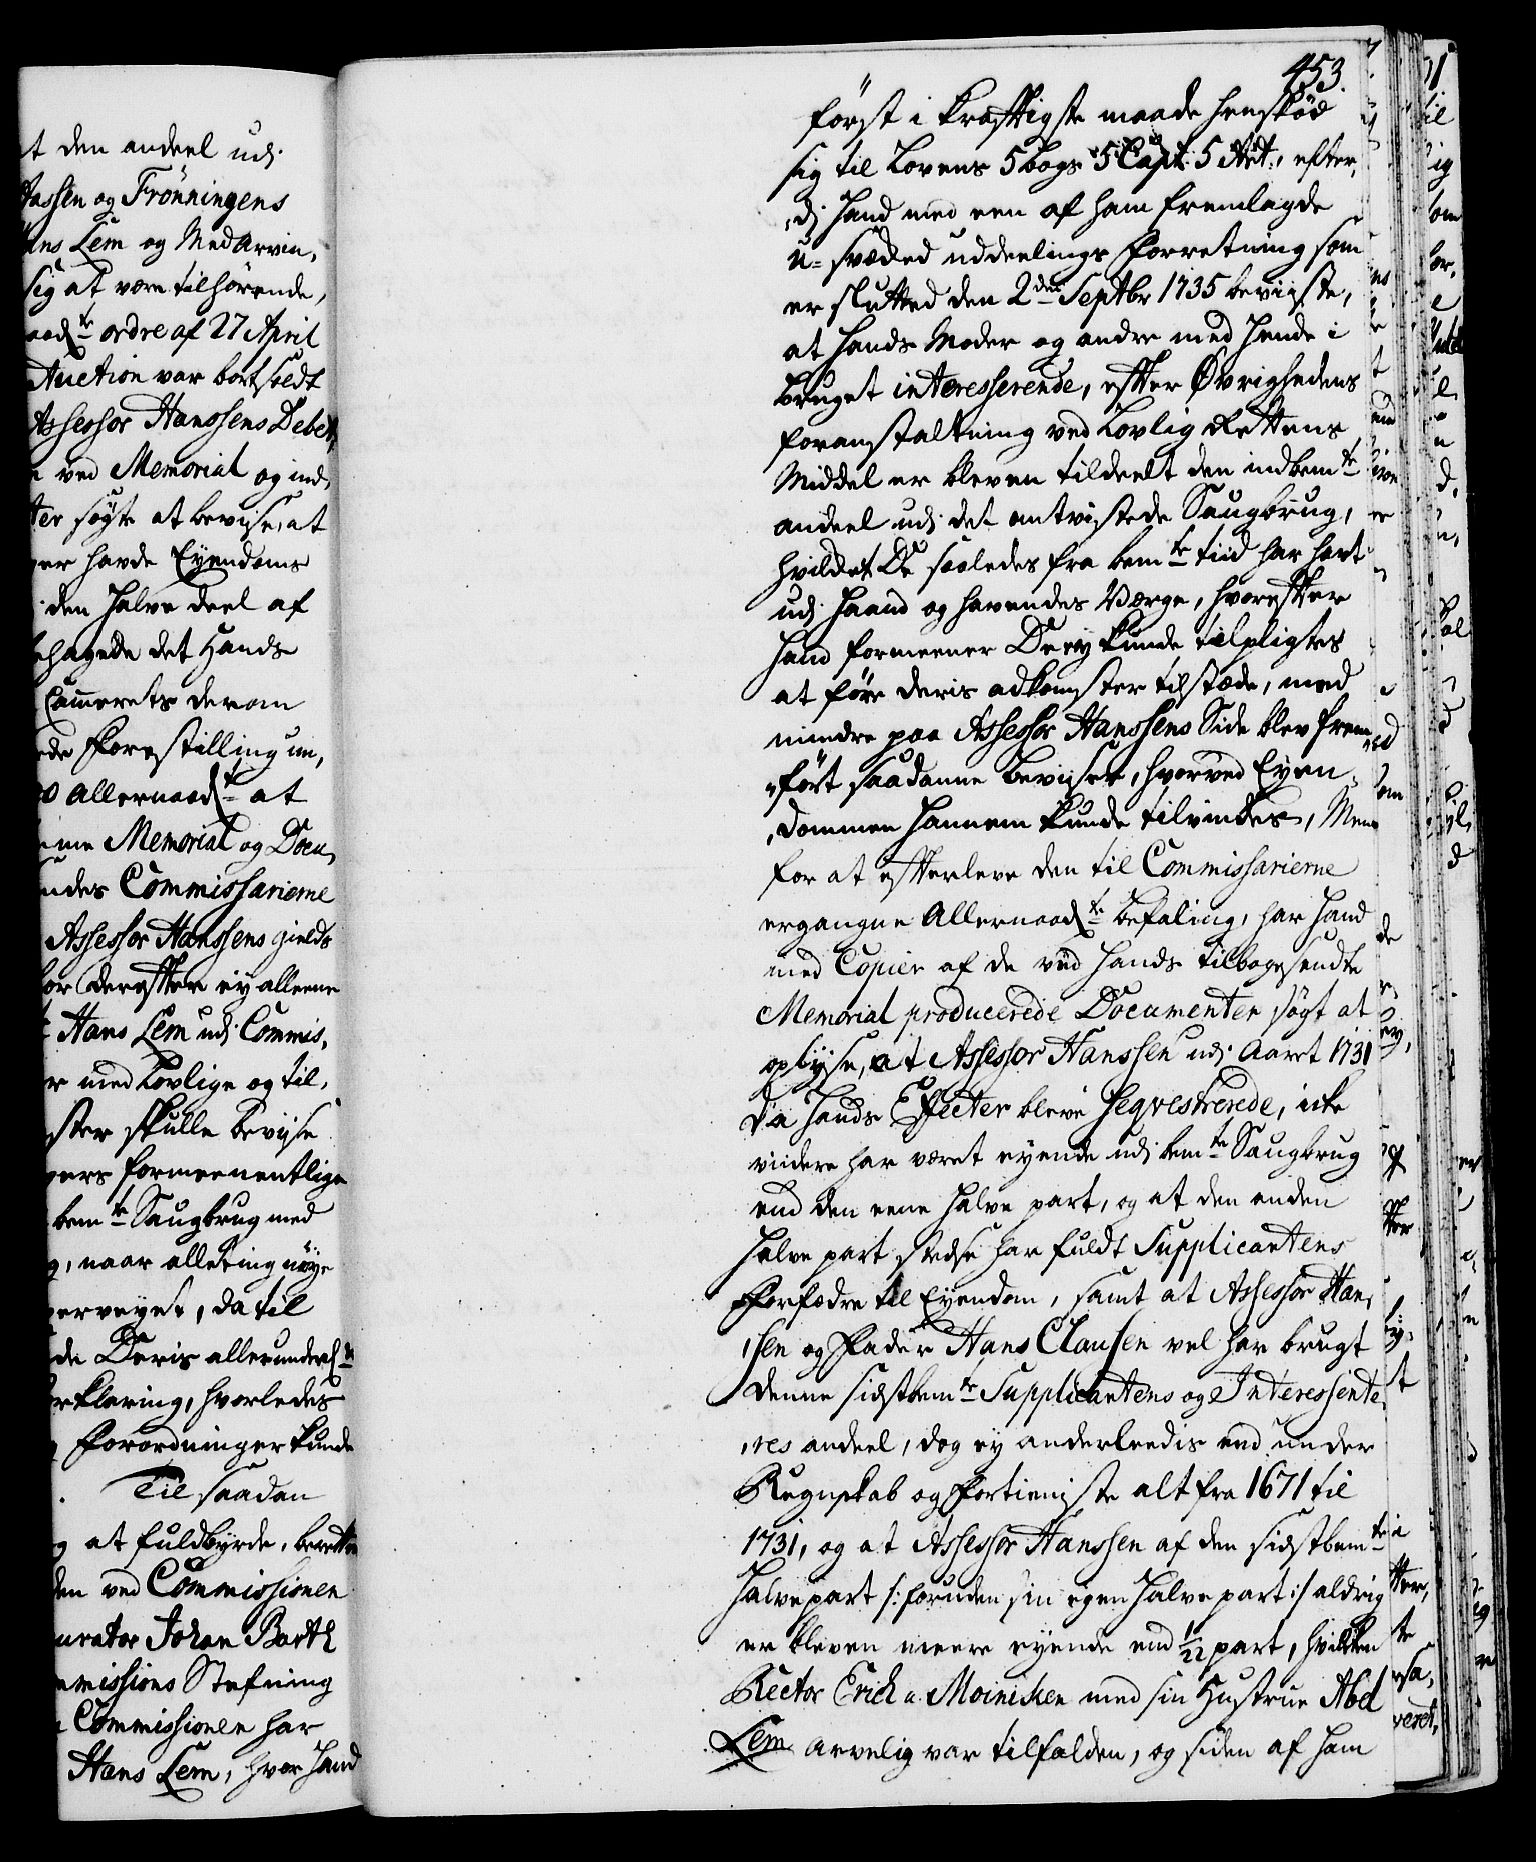 t den andeel udj
Hassen og Frönningens
ans Lem og Medarvin,
sig at være tilhörende,
aadte ordre af 27 April
Auction var bortsoldt
Assessor Hanssens Debet,
n ved Memorial og ind,
ter søgte at bevise, at
er havde Eyendoms
den halve deel af
ehagede det Hands
Camerets derom
ede Forestilling un,
o Allernaadt at
ine Memorial og Docu,
ndes Commissarierne
Assessor Hanssens gields
or derefter ey alleene
Hans Lem udj Commis,
r med Lovlige og til,
ster skulle bevise
pers formeenentlige
bemte Saugbrug med
g, naar alleting nøye
verveyet, da til
de Deris allerunderd
rklering, hvorledes
Forordninger kunde
Til saadan
g at fuldbyrde, berettes
den ved Commissionen
urator Johan Barth
mmissions Stefning
Commissionen har
Hans Lem, hvor hand
453.
först i kraftigste maade henskød
sig til Lovens 5 bogs 5 Capt: 5 Art:, efter,
,dj hand med een af ham fremlagde
u=svækked uddeelings Forretning som
er slutted den 2den Septbr 1735 beviiste,
at hands Moder og andre med hende i
bruget interesserende, efter Øvrighedens
foranstaltning ved Lovlig Rettens
Middel er bleven tildeelt den indbemte
andeel udj det omtvistede Saugbrug,
hvilket De saaledes fra bemte tiid har havt
udj haand og havendes Værge, hvorefter
hand formeener De ey kunde tilpligtes
at före deris adkomster tilstæde, med
mindre paa Assessor Hanssens Side blev frem,
,fört saadanne beviiser, hvorved Eyen,
,dommen hannem kunde tilvindes, Men
for at efterleve den til Commissarierne
ergangne Allernaadte befaling, har hand
med Copier af de ved hands tilbagesendte
Memorial producerede Documenter søgt at
oplyse, at Assessor Hanssen udj Aaret 1731
da hands Effecter bleve seqvestrerede, icke
viidere har været eyende udj bemte Saugbrug
end den eene halve part, og at den anden
halve part stedse har fuldt Supplicantens
Forfædre til Eyendom, samt at Assessor Han,
,sen og Fader Hans Clausen vel har brugt
denne sidstbemte Supplicantens og Interessente,
,res andeel, dog ey anderleedis end under
Regnskab og Fortieniste alt fra 1671 til
1731, og at Assessor Hanssen af den sidstbemte
halvepart /: foruden sin egen halve part :/ aldrig
er bleven meere eyende end 1/22 part, hvilken
Rector Erich a. Moinichen med sin Hustrue Abel
Lem arvelig var tilfalden, og siden af ham